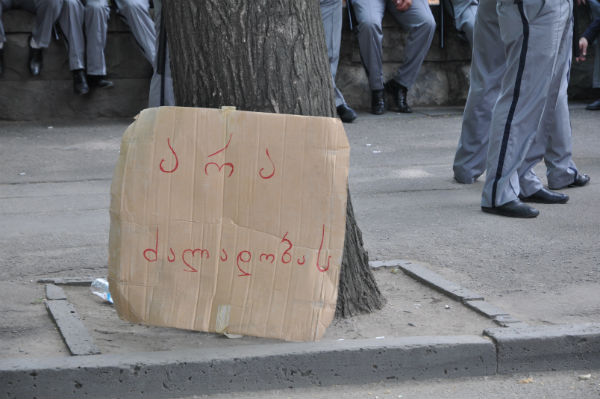 არა
ძალადობას